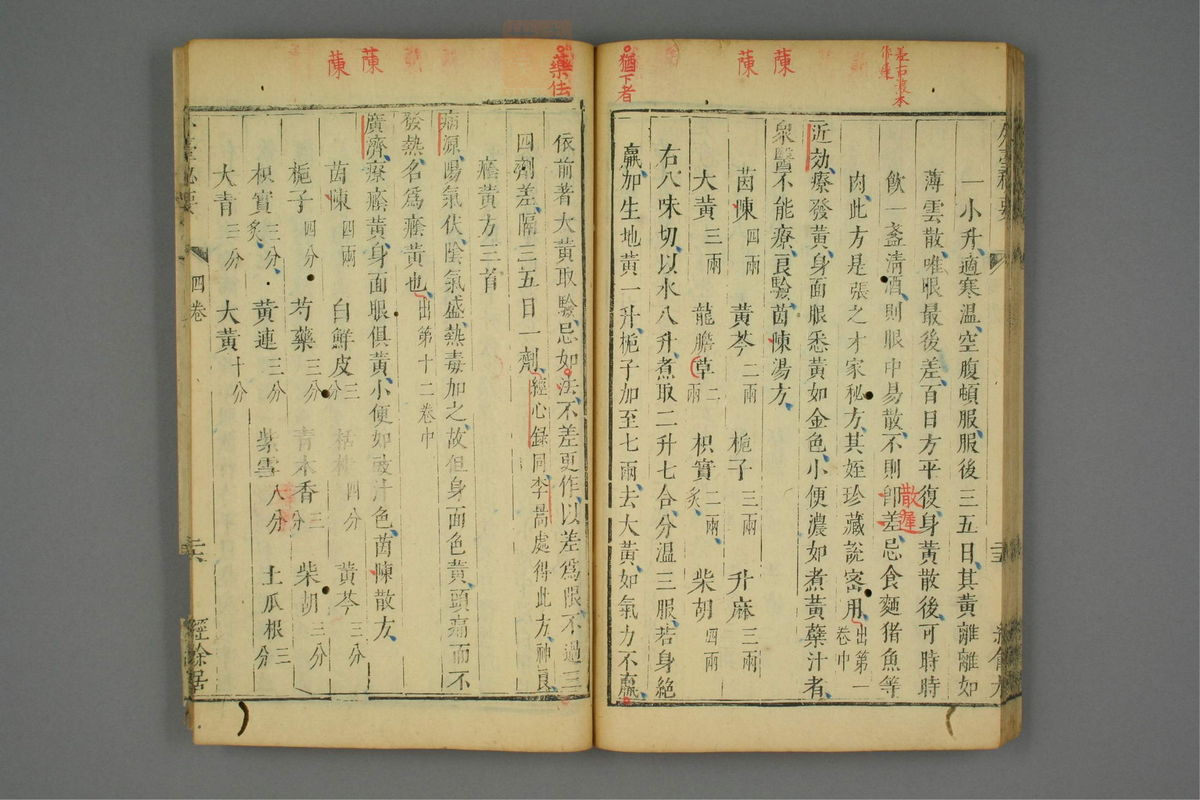 差古寫本
作遲
蔯
蔯
猶下者
一小升適寒溫空腹頓服服後三五日其黃離離如
薄雲散唯眼最後差百日方平復身黃散後可時時
飲一盞清酒則眼中易散不則卽差忌食麵猪魚等
散遲
肉此方是張之才家秘方其姪珍藏說密用出第一
卷中
近効療發黃身面眼悉黃如金色小便濃如煮黃蘗汁者
衆醫不能療良驗茵蔯湯方
茵蔯四兩 黃芩二兩 梔子三兩 升麻三兩
大黃三兩 龍膽草二兩 枳實二兩炙 柴胡四兩
右八味切以水八升煮取二升七合分溫三服若身絕
羸加生地黃一升梔子加至七兩去大黃如氣力不羸
藥法
蔯
蔯
依前著大黃取驗忌如法不差更作以差爲限不過三
四劑差隔三五日一劑經心錄同李暠處得此方神良
癊黃方三首
病源陽氣伏陰氣盛熱毒加之故但身面色黃頭痛而不
發熱名爲癊黃也出第十二卷中
廣濟療癊黃身面眼俱黃小便如豉汁色茵蔯散方
茵蔯四兩 白鮮皮三分 栝樓四分 黃芩三分
梔子四分 芍藥三分 青木香三分 柴胡三分
枳實三分炙 黃連三分 紫雪八分 土瓜根三分
大青三分 大黃十分
臺秘要 四卷 二六 經餘居